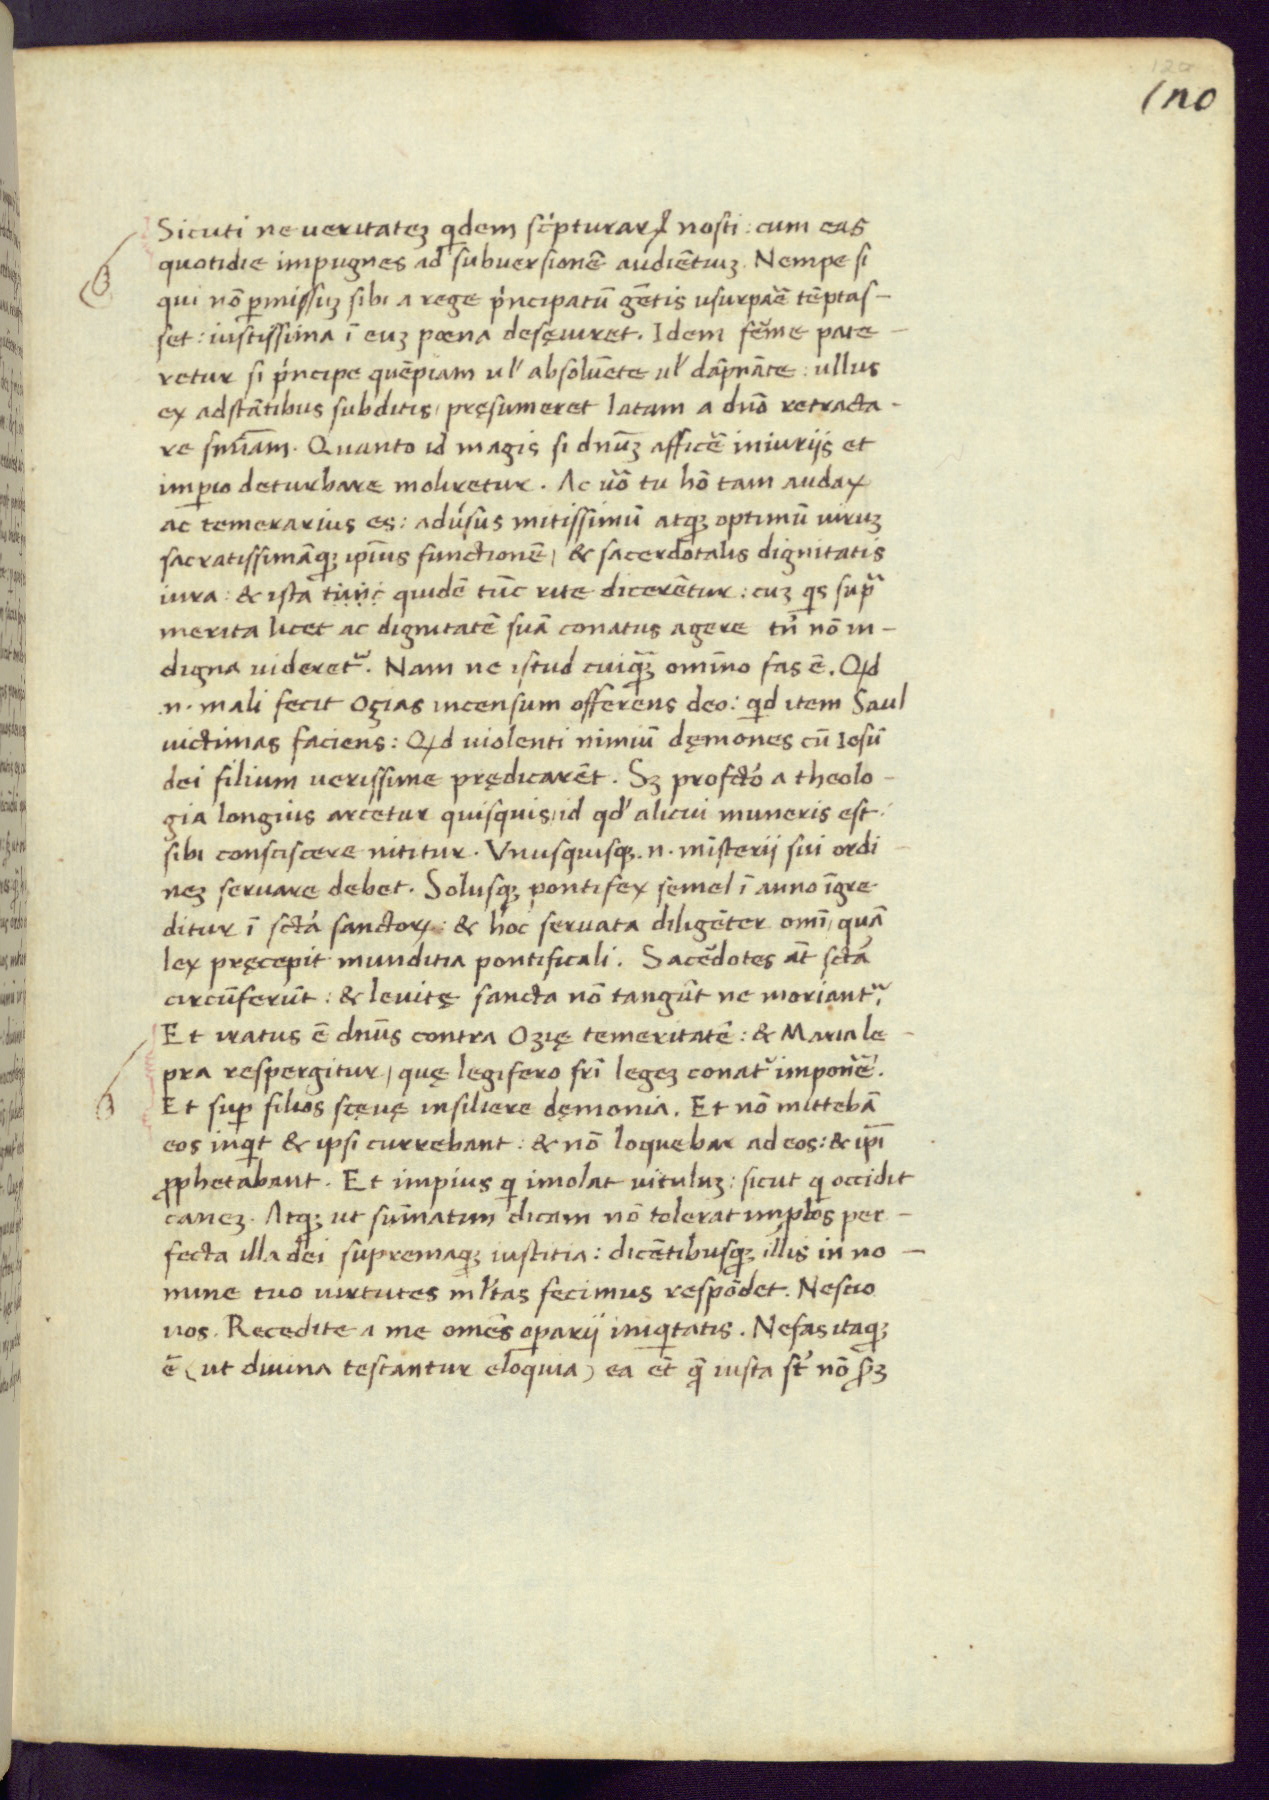 120
120
Sicuti ne ueritateʒ qͥdem scͥpturarꝝ nosti: cum eas
quotidie impugnes ad subuersionē audiētiuʒ. Nempe si
qui nō ꝑmissuʒ sibi a rege pͥncipatū gētis usurpar̃e tēptas-
set: iustissima ī euʒ pœna desęuiret. Idem fer̃me pate-
retur si pͥncipe quēpiam ul' absolūete ul' dāpnāte: ullus
ex adstātibus subditis, pręsumeret latam a dnō retracta-
re sniam̄. Quanto id magis si dnūʒ afficer̃ iniurijs et
imꝑio deturbare moliretur. Ac uō tu hō tam audax
ac temerarius es: adu̓sus mitissimū atqʒ optimū uiruʒ
sacratissimāqʒ ipīus functionē, & sacerdotalis dignitatis
iura: & ista tunc quidē tūc rite dicerētur: cuʒ qͥs supͣ
merita licet ac dignitatē suā conatus agere tn̄ nō in-
digna uideret᷑. Nam ne istud cuiqͣʒ omīno fas ē. Qd
.n. mali fecit Oçias incensum offerens deo: qͥd item Saul
uictimas faciens: Qd uiolenti nimiū dęmones cū Iesū
dei filium uerissime prędicarēt. Sʒ profcto̓ a theolo-
gia longius arcetur quisquis, id qd' alicui muneris est.
sibi consciscere nititur. Vnusquisqʒ .n. misterij sui ordi-
neʒ seruare debet. Solusqʒ pontifex semel ī anno īgre-
ditur ī scta̓ sanctorꝝ: & hoc seruata diligēter omī, quā
lex pręcepit munditia pontificali. Sacer̃dotes aūt scta̓
circūferūt: & leuitę sancta nō tangūt ne moriant᷑.
Et iratus ē dnūs contra Ozię temeritatē: & Maria le-
pra respergitur, quę legifero frī legeʒ conat᷑ imponer̃e.
Et suꝑ filios scęuę insiliere dęmonia. Et nō mittebā
eos inqͥt & ipsi currebant: & nō loquebar ad eos: & ipī
ꝓphetabant. Et impius qͥ imolat uituluʒ: sicut qͥ occidit
caneʒ. Atqʒ ut sum̄atim dicam nō tolerat impios per-
fecta illa dei supremaqʒ iustitia: dicētibusqʒ illis in no-
mine tuo uirtutes ml'tas fecimus respōdet. Nescio
uos. Recedite a me omēs oꝑarij iniqͥtatis. Nefas itaqʒ
ē (ut diuina testantur eloquia) ea et̄ q̄ iusta st̓ nō ꝓʒ